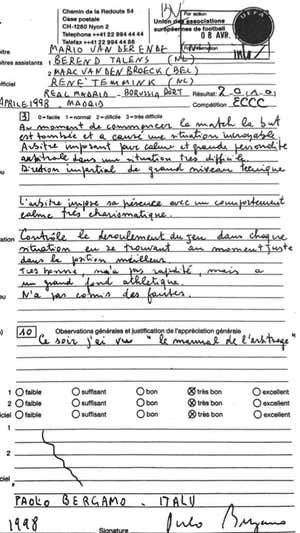 Chemin de la Redoute 54
Case postale
CH-1260 Nyon 2
Telephone ++41 22 994 44 44
Telefax ++41 22 994 44 88
Union des associations
européennes de football
UEFA
For action
08 AVR.
MARIO VAN DER ENDE
BEREND TALENS (NL)
MARC VAN DEN BROECK (BEL)
RENÉ TEMMINK (NL)
REAL MADRID - BORUSSIA DORT. Résultat 2-0 (1-0)
APRILE 1998 - MADRID Compétition ECCC
3 0 = facile 1 = normal 2 = difficile 3 = très difficile
Au moment de commencer le match le but
est tombée et a cause une situation incroyable.
Arbitre imposant par calme et grande personalité
arbitrale dans une situation très difficile.
Direction impartial de grand niveau technique
L'arbitre impose sa présence avec un comportement
calme très charismatique.
Contrôle le deroulement du jeu dans chaque
situation en se trouvant au moment juste
dans la position meilleur.
Tres bonne, n'a pas rapidité, mais a
un grand fond athletique.
N'a pas comis des fautes.
10 Observations générales et justification de l'appréciation générale
Ce soir j'ai vu "le manual de l'arbitrage"
1 faible suffisant bon très bon excellent
2 faible suffisant bon très bon excellent
ciel faible suffisant bon très bon excellent
1
2
ciel
PAOLO BERGAMO - ITALY
1998 Signature Paolo Bergamo